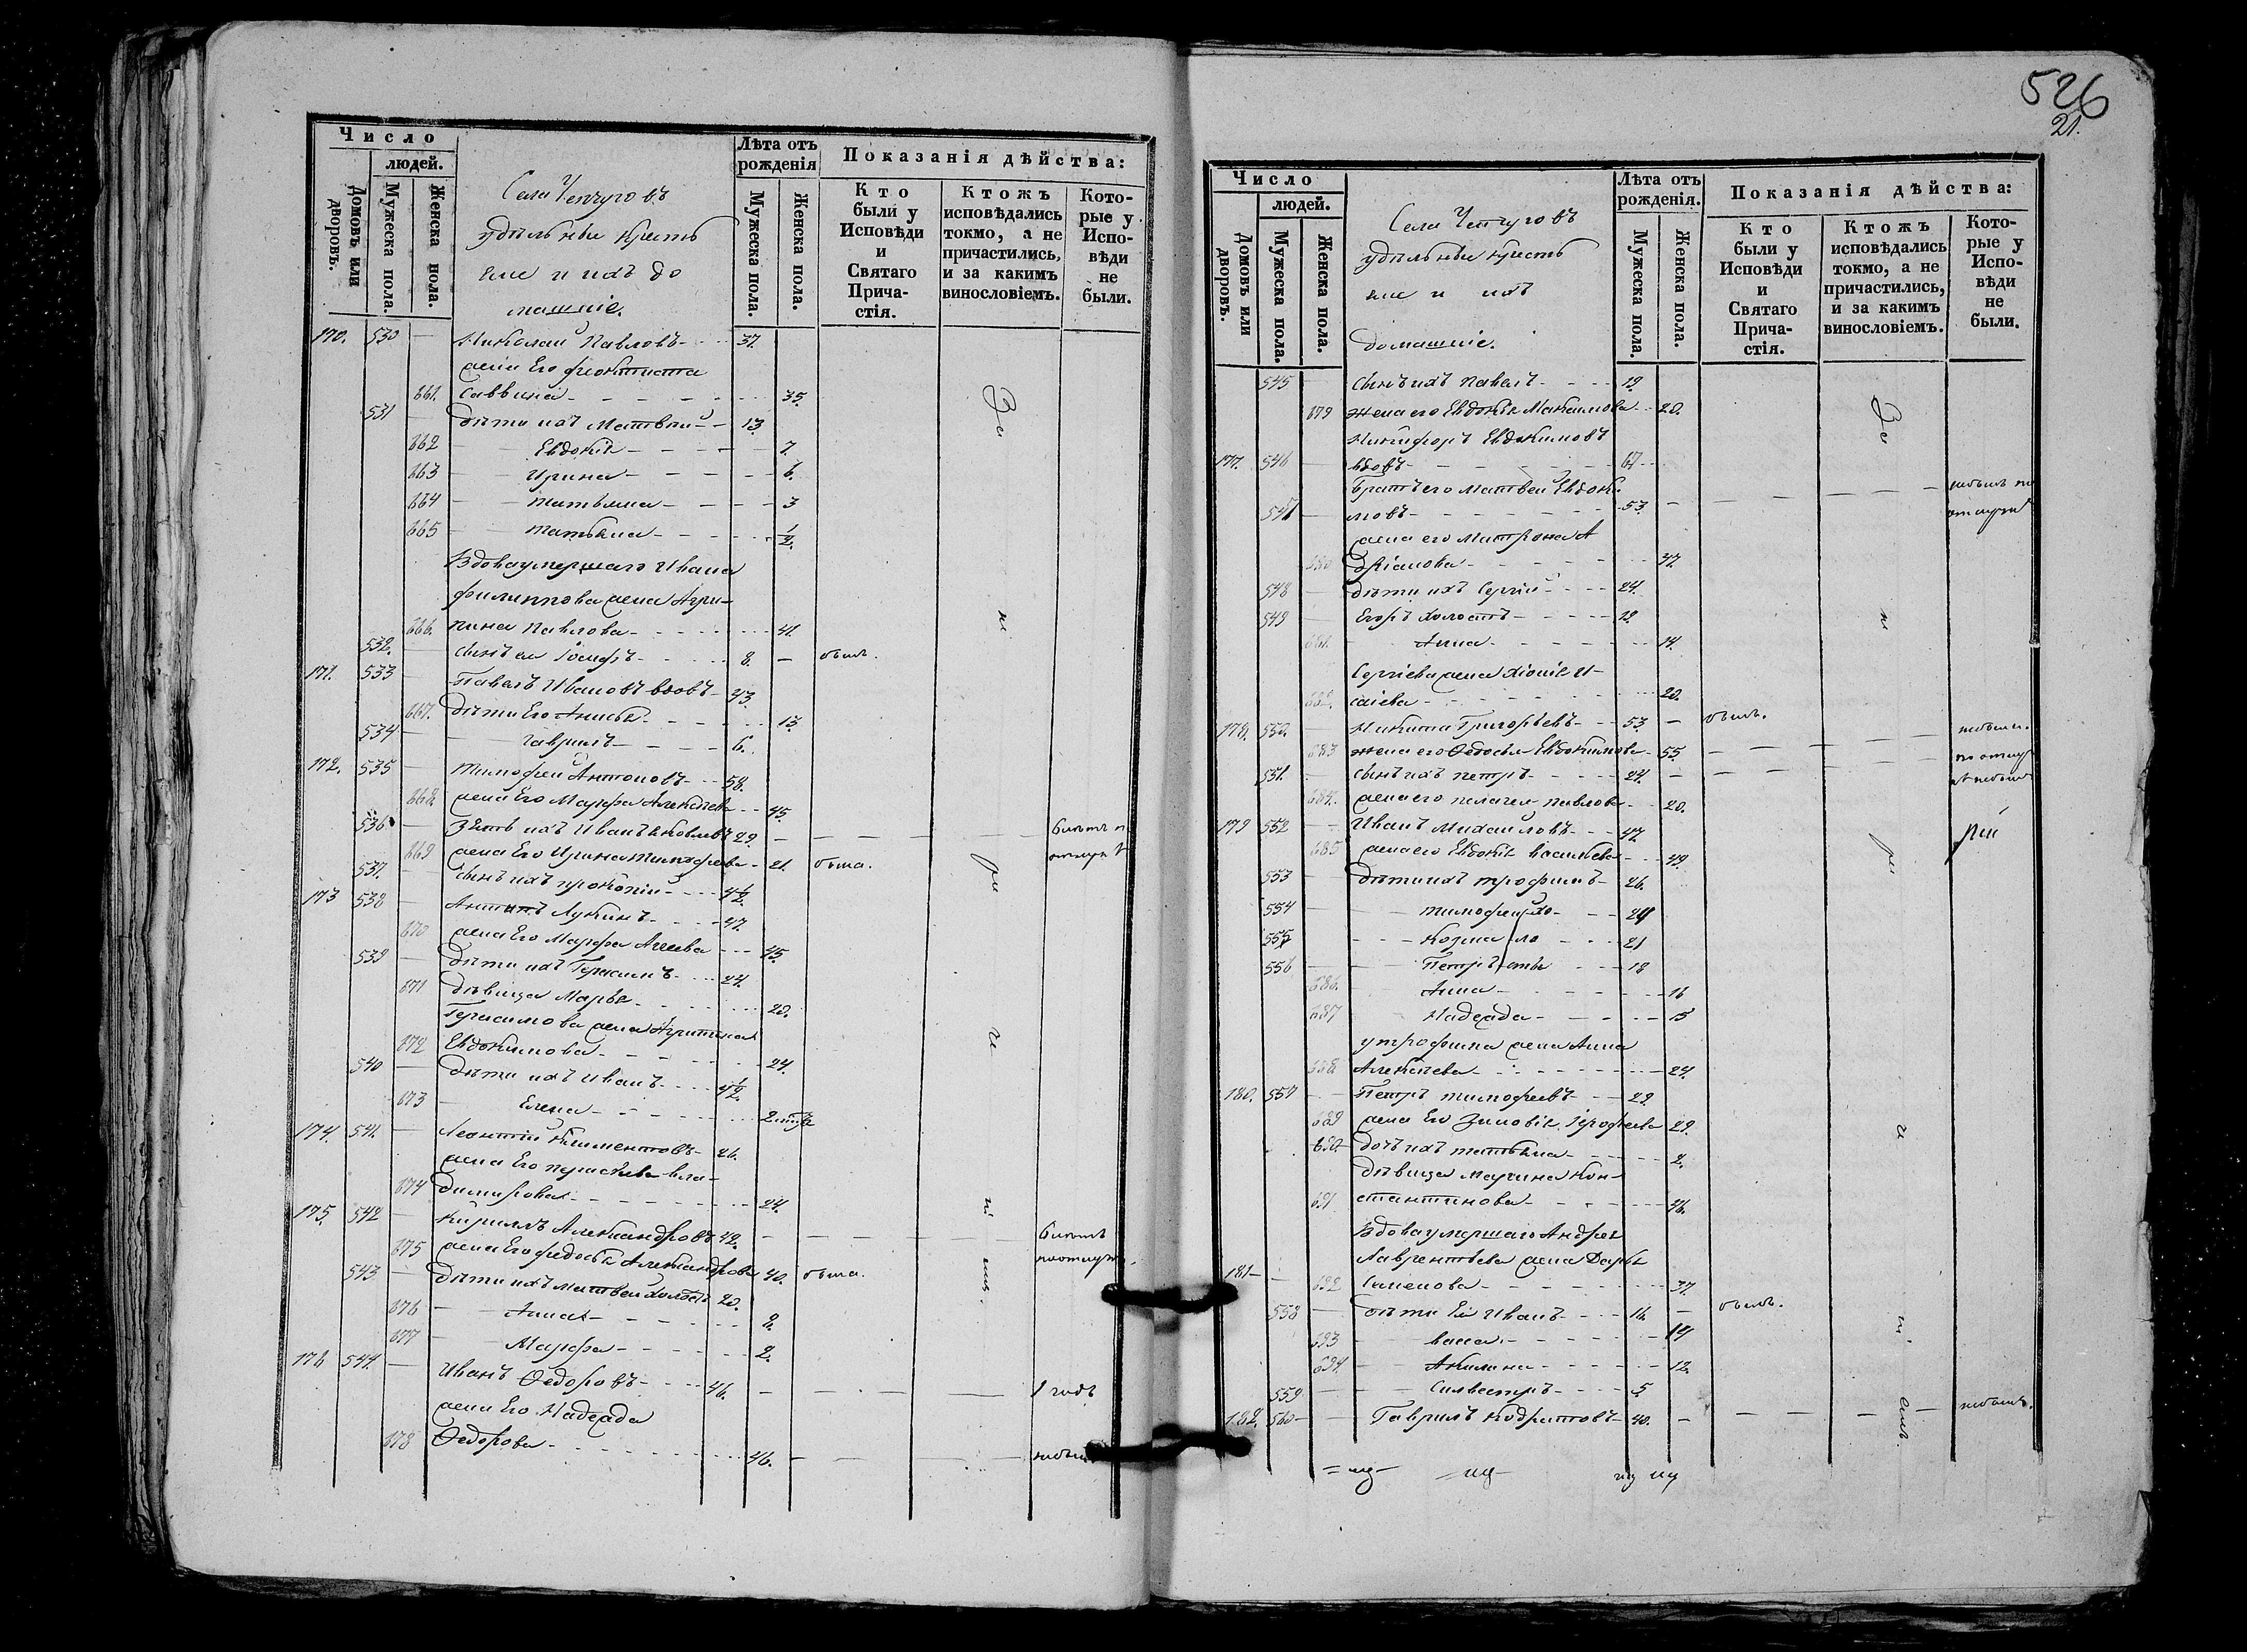 Число
людей.
Домовъ или дворовъ.
Мужеска пола.
Женска пола.
Села Чепчуговъ
удѣльныи кресть
яне и ихъ до
машніе.
Лѣта отъ рожденія
Мужеска пола.
Женска пола.
Показанія дѣйства:
Кто были у Исповѣди и Святаго Прича-стія.
Ктожъ исповѣдались токмо, а не причастились, и за какимъ винословіемъ.
Кото-рые у Испо-вѣди не были.
170. 530 Николай Павловъ 37.
жена Его Феоктиста
661. Саввина 35.
531 дѣти ихъ Матвѣй 13
662 Евдокія 7.
663 Ирина 6.
664 Татьяна 3
665 Татьяна 1/2.
Вдова умершаго Ивана
Филиппова жена Агри-
666. пина Павлова 41.
532. сынъ ея Іосифъ 8. былъ.
171. 533 Павелъ Ивановъ вдовъ 43.
667. дѣти Его Анисья 13.
534 Гаврилъ 6.
172. 535 Тимофей Антоновъ 58.
668. жена Его Марфа Алексѣева 45.
536 Зять ихъ Иванъ Яковлевъ 29
669 жена Его Ирина Тимофеева 21. была.
537. сынъ ихъ Прокопій 1/2.
173 538 Антипъ Лукинъ 47.
670 жена Его Марфа 45.
539 дѣти ихъ Герасимъ 24.
671 дѣвица Марья 20.
Герасимова жена
672 Евдокимова 24.
540 дѣти ихъ Иванъ
673 Елена
174. 541. Леонтій Климентовъ 26.
жена Его Прасковья Вла-
674 димирова 24.
175. 542 Кириллъ Александровъ 42.
675 жена Его Федосья Александрова 40. была.
543 дѣти ихъ Матвей холостъ 20.
676 Анна
677 Марфа 2.
176 544. Иванъ Ѳедоровъ 46. 1 годъ
жена Его Надежда
678 Ѳедорова 46.
526
21.
Число
людей.
Домовъ или дворовъ.
Мужеска пола.
Женска пола.
Села Чепчуговъ
удѣльныи кресть
яне и ихъ
домашніе.
Лѣта отъ рожденія.
Мужеска пола.
Женска пола.
Показанія дѣйства:
Кто были у Исповѣди и Святаго Прича-стія.
Ктожъ исповѣдались токмо, а не причастились, и за какимъ винословіемъ.
Кото-рые у Испо-вѣди не были.
545 сынъ ихъ Павелъ 19.
679 жена его Евдокія Максимова 20.
Никифоръ Евдокимовъ
177. 546 вдовъ 67
Братъ его Матвей Евдоки-
547 мовъ 53.
жена его Матрона А
680 дріанова 47.
548 дѣти ихъ Сергій 24.
549 Егоръ холостъ
681. Анна 14.
Сергіева жена Хіонія И
682. саіева 20.
178. 550. Никита Григорьевъ 53 былъ.
683 жена его Ѳедосья Евдокимова 55.
551. сынъ ихъ Петръ 24.
684. жена его Пелагея Павлова 20.
179 552 Иванъ Михайловъ 47.
685 жена его Евдокія 49.
553 дѣти ихъ Трофимъ 26.
554 Тимофей хо-
555 Козма ло 21
556 Петръ сты 18
686. Анна 16
687 Надежда 15
у Трофима жена Анна
688 Алексѣева 24.
180. 557 Петръ Тимофеевъ 29.
689 жена Его Зиновія Ерофеева 29.
690 дочь ихъ Татьяна 2.
дѣвица Марина Кон-
691 стантинова
Вдова умершаго Андрея
Лаврентьева жена Дарья
181 692 Семенова 37.
558 дѣти Ея Иванъ 16. былъ.
693 Васса 14
694. Акилина 12.
559 Силвестръ 5
182. 560 Гаврилъ Кодратовъ 40.